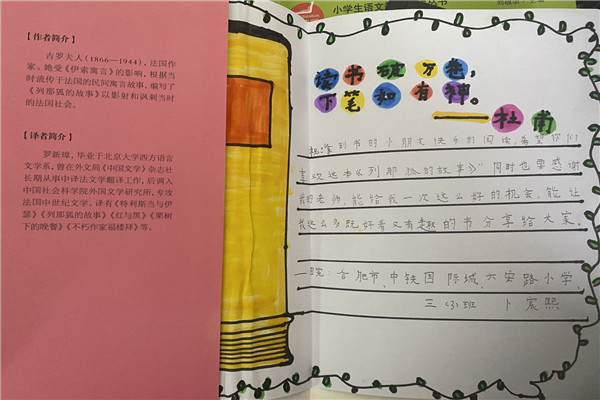 小学生语文
【作者简介】
吉罗夫人（1866—1944），法国作
家。她受《伊索寓言》的影响，根据当
时流传于法国的民间寓言故事，编写了
《列那狐的故事》以影射和讽刺当时
的法国社会。
【译者简介】
罗新璋，毕业于北京大学西方语言
文学系，曾在外文局《中国文学》杂志社
长期从事中译法文学翻译工作，后调入
中国社会科学院外国文学研究所，专攻
法国中世纪文学。译有《特利斯当与伊
瑟》《列那狐的故事》《红与黑》《栗树
下的晚餐》《不朽作家福楼拜》等。
读书破万卷，
下笔如有神。
——杜甫
祝拿到书的小朋友快乐的阅读，希望你们
喜欢这本《列那狐的故事》”同时也要感谢
我的老师，能给我一次这么好的机会，能让
我这么多既好看又有趣的书分享给大家。
合肥市、中铁国际城、六安路小学、
三（3）班 卜宸熙